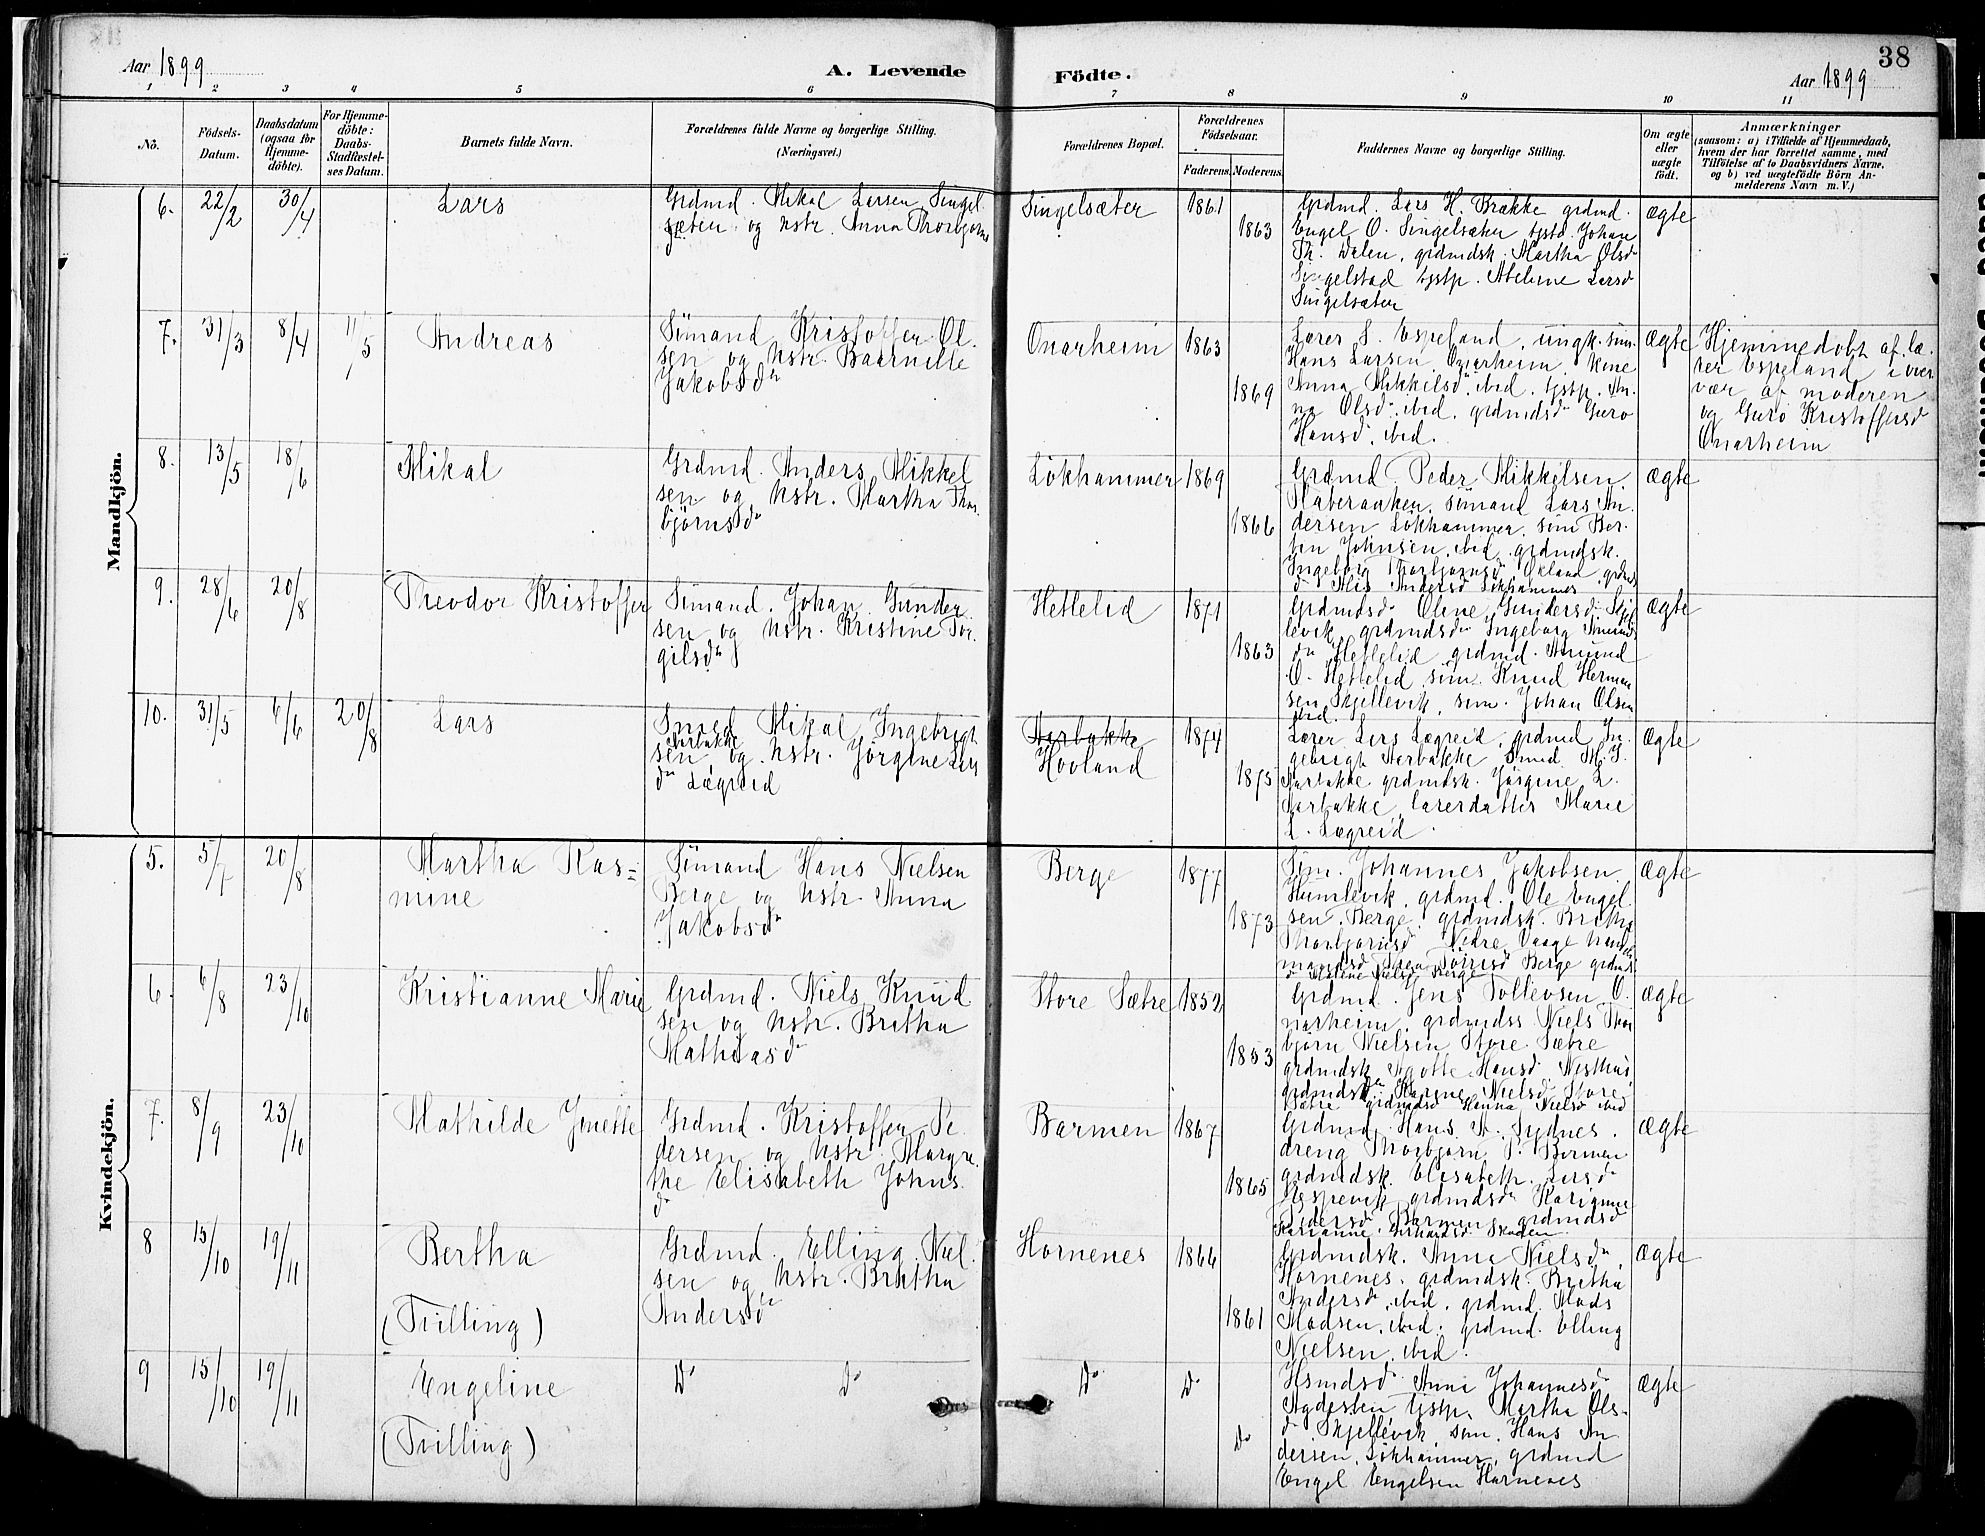 38
Aar 1899
A. Levende
Födte.
Aar 1899
1 2 3 4 5 6 7 8 9 10 11
No.
Födsels-
Datum.
Daabsdatum
(ogsaa for
Hjemme-
döbte).
For Hjemme-
döbte:
Daabs-
Stadfæstel-
ses Datum.
Barnets fulde Navn.
Forældrenes fulde Navne og borgerlige Stilling.
(Næringsvei.)
Forældrenes Bopæl.
Forældrenes
Födselsaar.
Faderens. Moderens.
Faddernes Navne og borgerlige Stilling.
Om ægte
eller
uægte
födt.
Anmærkninger
(saasom: a) i Tilfælde af Hjemmedaab,
hvem der har forrettet samme, med
Tilföielse af to Daabsvidners Navne,
og b) ved uægtefödte Börn An-
melderens Navn m. V.)
Mandkjön.
6. 22/2 30/4
Lars
Grdmd. Mikal Larsen Singel
sæten og hstr. Anna Thorbjørns
Singelsæter
1861
1863
Grdmd. Lars H. Brække grdmd.
Engel O. Singelsæter tjstd. Johan
Th. Dalen, grdmdsk. Martha Olsd
Singelstad tjstp. Abeline Larsd
Singelsæter
ægte
7. 31/3 8/4 11/5
Andreas
Sömand Kristoffer Ol-
sen og hstr. Baarnille
Jakobsdr
Onarheim
1863
1869
Lærer S. Espeland, ungk. söm.
Hans Larsen Onarheim, kone
Anna Mikkelsdr ibid. tjstp. An-
na Olsdr ibid. grdmdsdr Guro
Hansd. ibid.
Ægte
Hjemmedöbt af læ-
rer Espeland i over
vær af moderen
og Guro Kristoffersd
Onarheim
8. 13/5 18/6
Mikal
Grdmd. Anders Mikkel
sen og hstr. Martha Thor-
björnsdr
Lökhammer
1869
1866
Grdmd. Peder Mikkelsen
sömand Lars An-
dersen Lökhammer, söm Ber-
Johnsen, ibid. grdmdsk.
Ingeborg Thorbjörnsd. Økland, grdmds
d Alis Andersd Lökhammer
ægte
9. 28/6 20/8
Theodor Kristoffer
Sömand. Johan Gunder
sen og hstr. Kristine Tor-
gilsdr
Hettelid
1871
1863
Grdmdsd Oline Gundersd. Skjel
levik, grdmdsdr Ingeborg Amunds
dr Hettelid grdmd. Amund
O. Hettelid söm. Knud Herman
sen Skjellevik, söm. Johan Olsen
ibid.
Ægte
10. 31/5 6/6 20/8
Lars
Smed Mikal Ingebrigt
Aarbakke
sen og hstr. Jörgine Lars
dr Lægreid
Aarbakke
Hovland
1874
1875
Lærer Lars Lægreid, grdmd In-
gebrigt Aarbakke Smed M. I.
Aarbakke grdmdsk. Jörgine L.
Aarbakke, lærerdatter Marie
L. Lægreid.
Ægte
Kvindekjön.
5. 5/7 20/8
Martha Ras=
mine
Sömand Hans Nielsen
Berge og hstr. Anna
Jakobsdr
Berge
1877
1873
Söm. Johannes Jakobsen
Humlevik, grdmd. Ole Engel
sen, Berge, grdmdsk. Britha
Thorbjörnsd Nedre Vaage
Berge grdmds
d Malene Nielsd Berge
Ægte
6. 6/8 23/10
Kristianne Marie
Grdmd. Niels Knud
sen og hstr. Britha
Mathiasdr
Store Sætre
1852
1853
Grdmd. Jens Tollevsen O-
narheim, grdmdss Niels Thor
björn Nielsen Store Sætre
grdmdsk Agotte Hansd Nesthus
grdmdsk Karene Nielsd Store
Sætre grdmdsd Hanna Nielsd ibid
ægte
7. 8/9 23/10
Mathilde Jenette
Grdmd. Kristoffer Pe
dersen og hstr. Margre
the Elisabeth Johns
dr
Barmen
1867
1865
Grdmd. Hans A. Sydnes,
dreng Thorbjörn P. Barmen
grdmdsk. Elisabeth Larsdr
Hespevik, grdmdsdr Karianne
Pedersd Barmen, grdmdsd
Karianne Skaden
Ægte
8 15/10 19/11
Bertha
(Tvilling)
Grdmd. Elling Niel
sen og hstr. Britha
Andersdr
Hornenes
1866
1861
Grdmdsk. Anna Nielsdr
Hornenes, grdmdsk. Britha
Andersdr, ibid, grdmd. Mads
Madsen, ibid, grdmd. Elling
Nielsen, ibid.
Ægte
9 15/10 19/11
Engeline
(Tvilling)
Do Do
Do
Do
Do
Hsmdsdr Anna Johannesdr
Agdesten tjstp. Martha Ols-
dr Skjellevik, söm. Hans An
dersen, Lökhammer, grdmd
Engel Engelsen Hornenes
Ægte